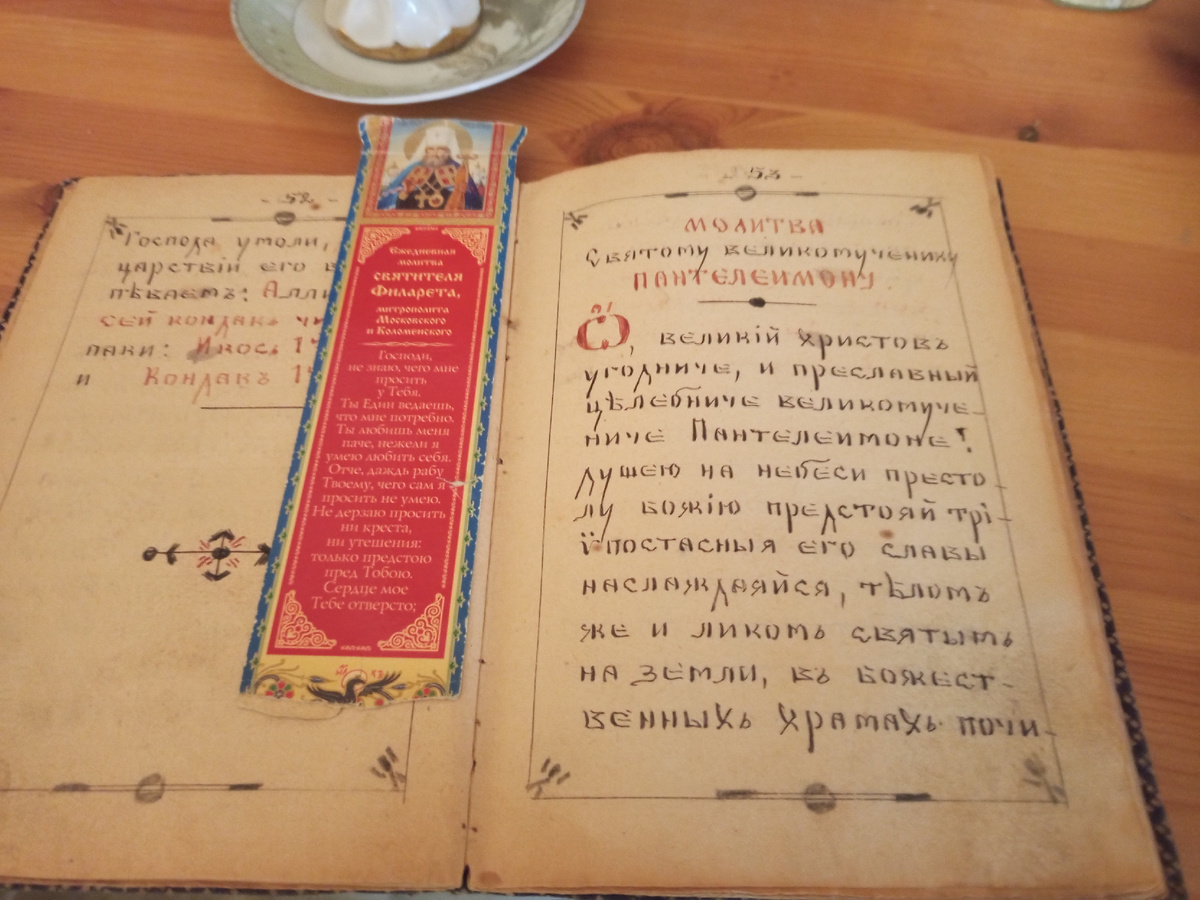 - 52 -
Господа умоли,
царствіи его в
пѣваемъ: Алли
сей кондакъ чи
паки: Икосъ 1
и Кондакъ 1
Ежедневная
молитва
святителя
Филарета,
митрополита
Московского
и Коломенского
Господи,
не знаю, чего мне
просить
у Тебя.
Ты Един ведаешь,
что мне потребно.
Ты любишь меня
паче, нежели я
умею любить себя.
Отче, даждь рабу
Твоему, чего сам я
просить не умею.
Не дерзаю просить
ни креста,
ни утешения:
только предстою
пред Тобою.
Сердце мое
Тебе отверсто;
- 53 -
МОЛИТВА
Святому великомученику
ПАНТЕЛЕИМОНУ.
Ѽ, великій Христовъ
угодниче, и преславный
цѣлебниче великомуче-
ниче Пантелеимоне!
Душею на небеси престо-
лу Божію предстояй трі-
ѵпостасныя его славы
наслаждаяйся, тѣломъ
же и ликомъ святымъ
на земли, въ божест-
венныхъ храмахъ почи-